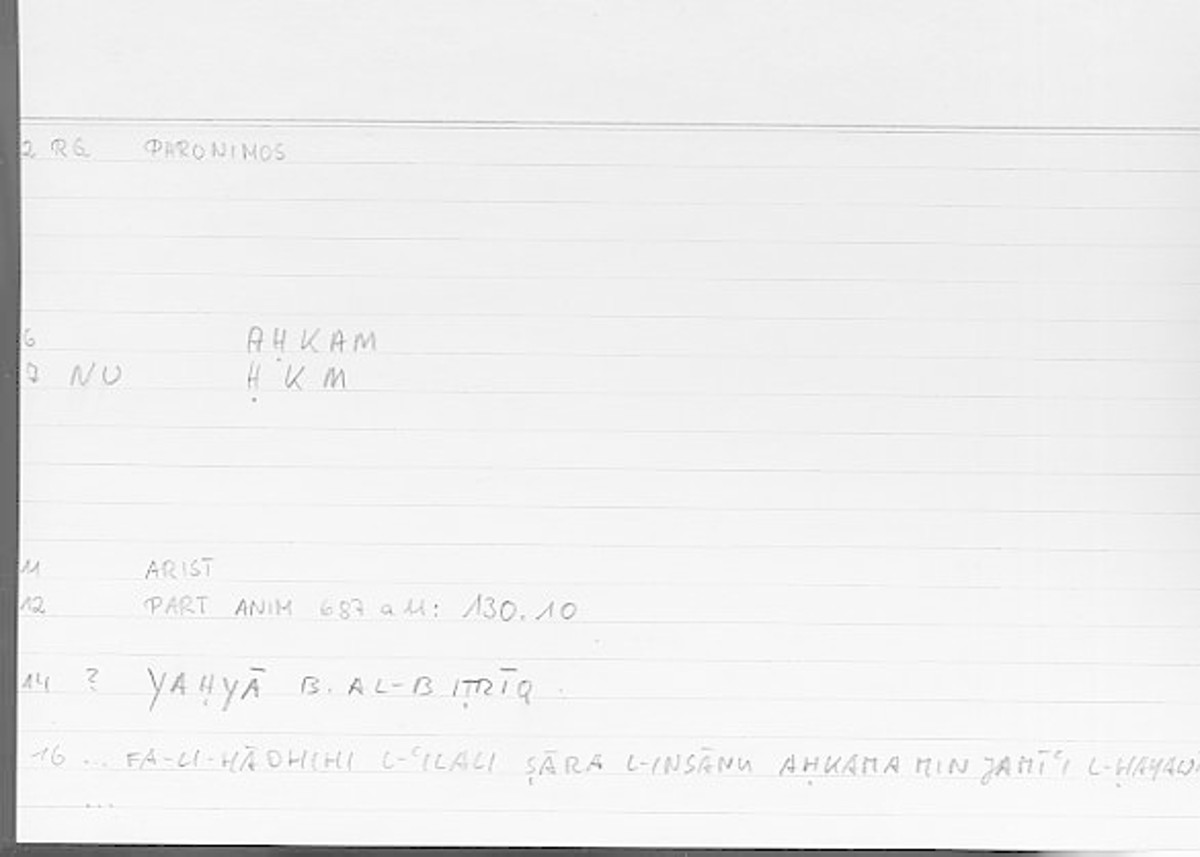 2 RG PARONIMOS
6 AḤKAM
7 NU ḤKM
11 ARIST
12 PART ANIM 687 a 11: 130.10
14 ? YAḤYĀ B. AL-BIṬRĪQ
16 ... FA-LI-HĀDHIHI L-ʿILALI ṢĀRA L-INSĀNU AḤKAMA MIN JAMĪʿI L-ḤAYAW
...